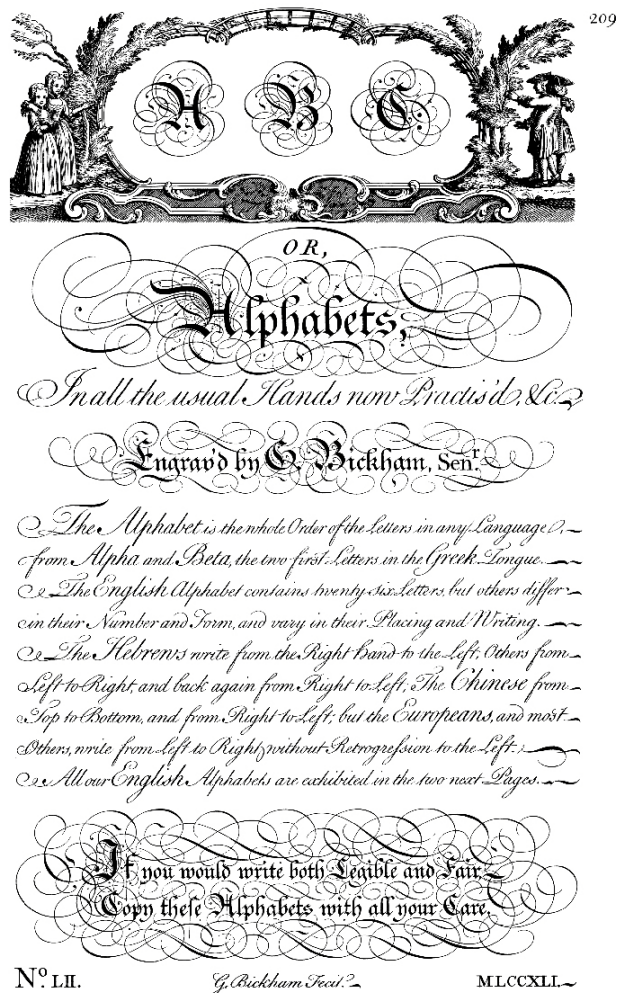 209
A B C
OR,
Alphabets,
In all the usual Hands now Practis'd, &c.
Engrav'd by G. Bickham, Senr.
The Alphabet is the whole Order of the Letters in any Language,
from Alpha and Beta, the two first Letters in the Greek Tongue.
The English Alphabet contains twenty six Letters, but others differ
in their Number and Form, and vary in their Placing and Writing.
The Hebrews write from the Right Hand to the Left; Others from
Left to Right, and back again from Right to Left; The Chinese from
Top to Bottom, and from Right to Left; but the Europeans, and most
Others, write from Left to Right, without Retrogression to the Left.
All our English Alphabets are exhibited in the two next Pages.
If you would write both Legible and Fair,
Copy these Alphabets with all your Care.
No. LII.
G. Bickham Fecit.
MLCCXLI.